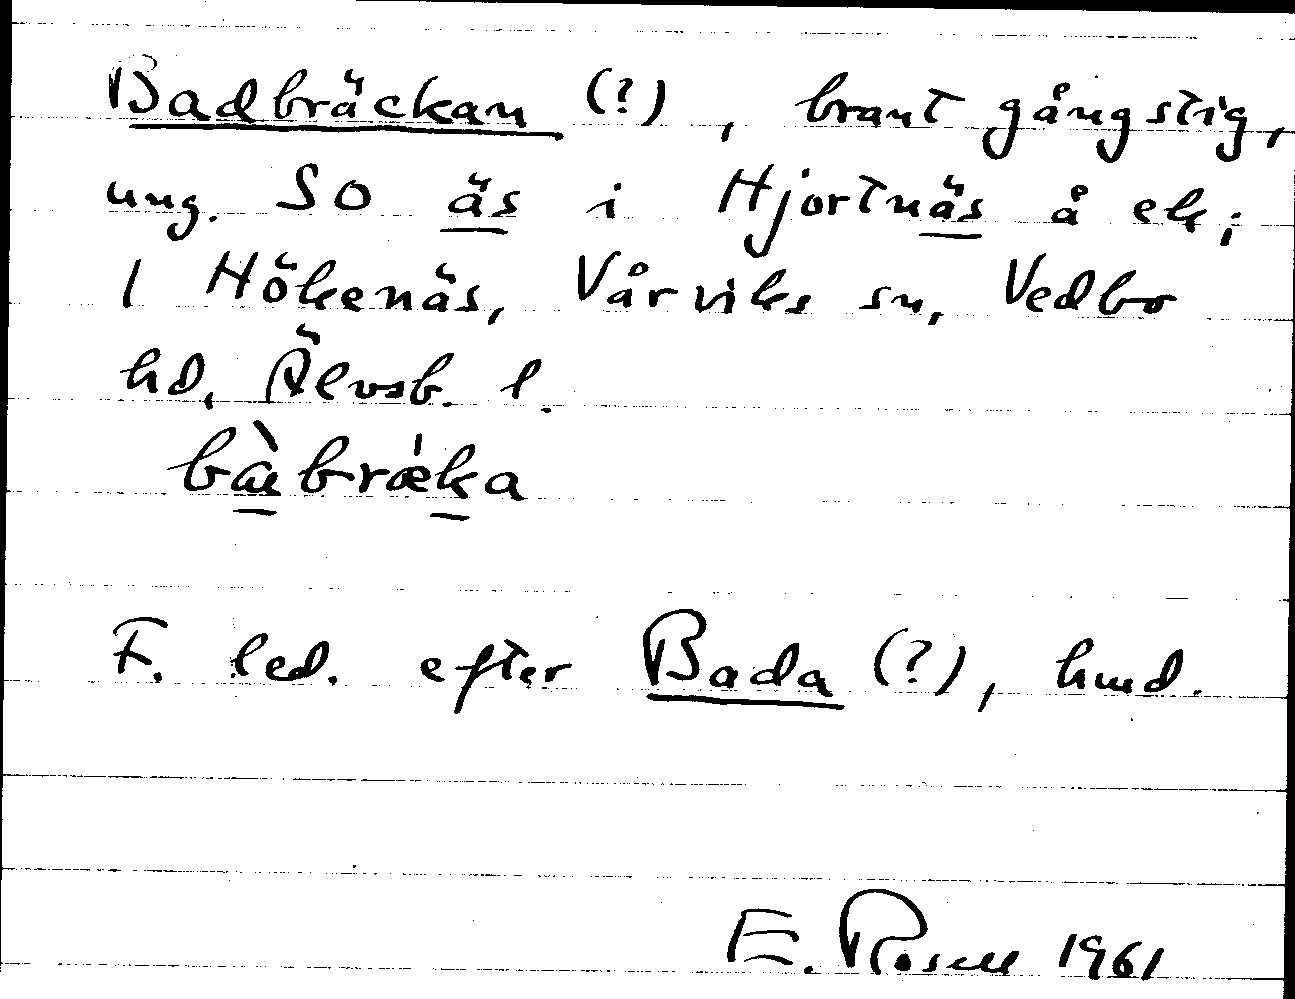 Badbräckan (?), brant gångstig,
ung. SO äs i Hjortnäs å ek;
/ Hökenäs, Vårviks sn, Vedbo
hd, Älvsb. l.
bàbrǽka
F. led. efter Bada (?), hund.
E. Rosell 1961